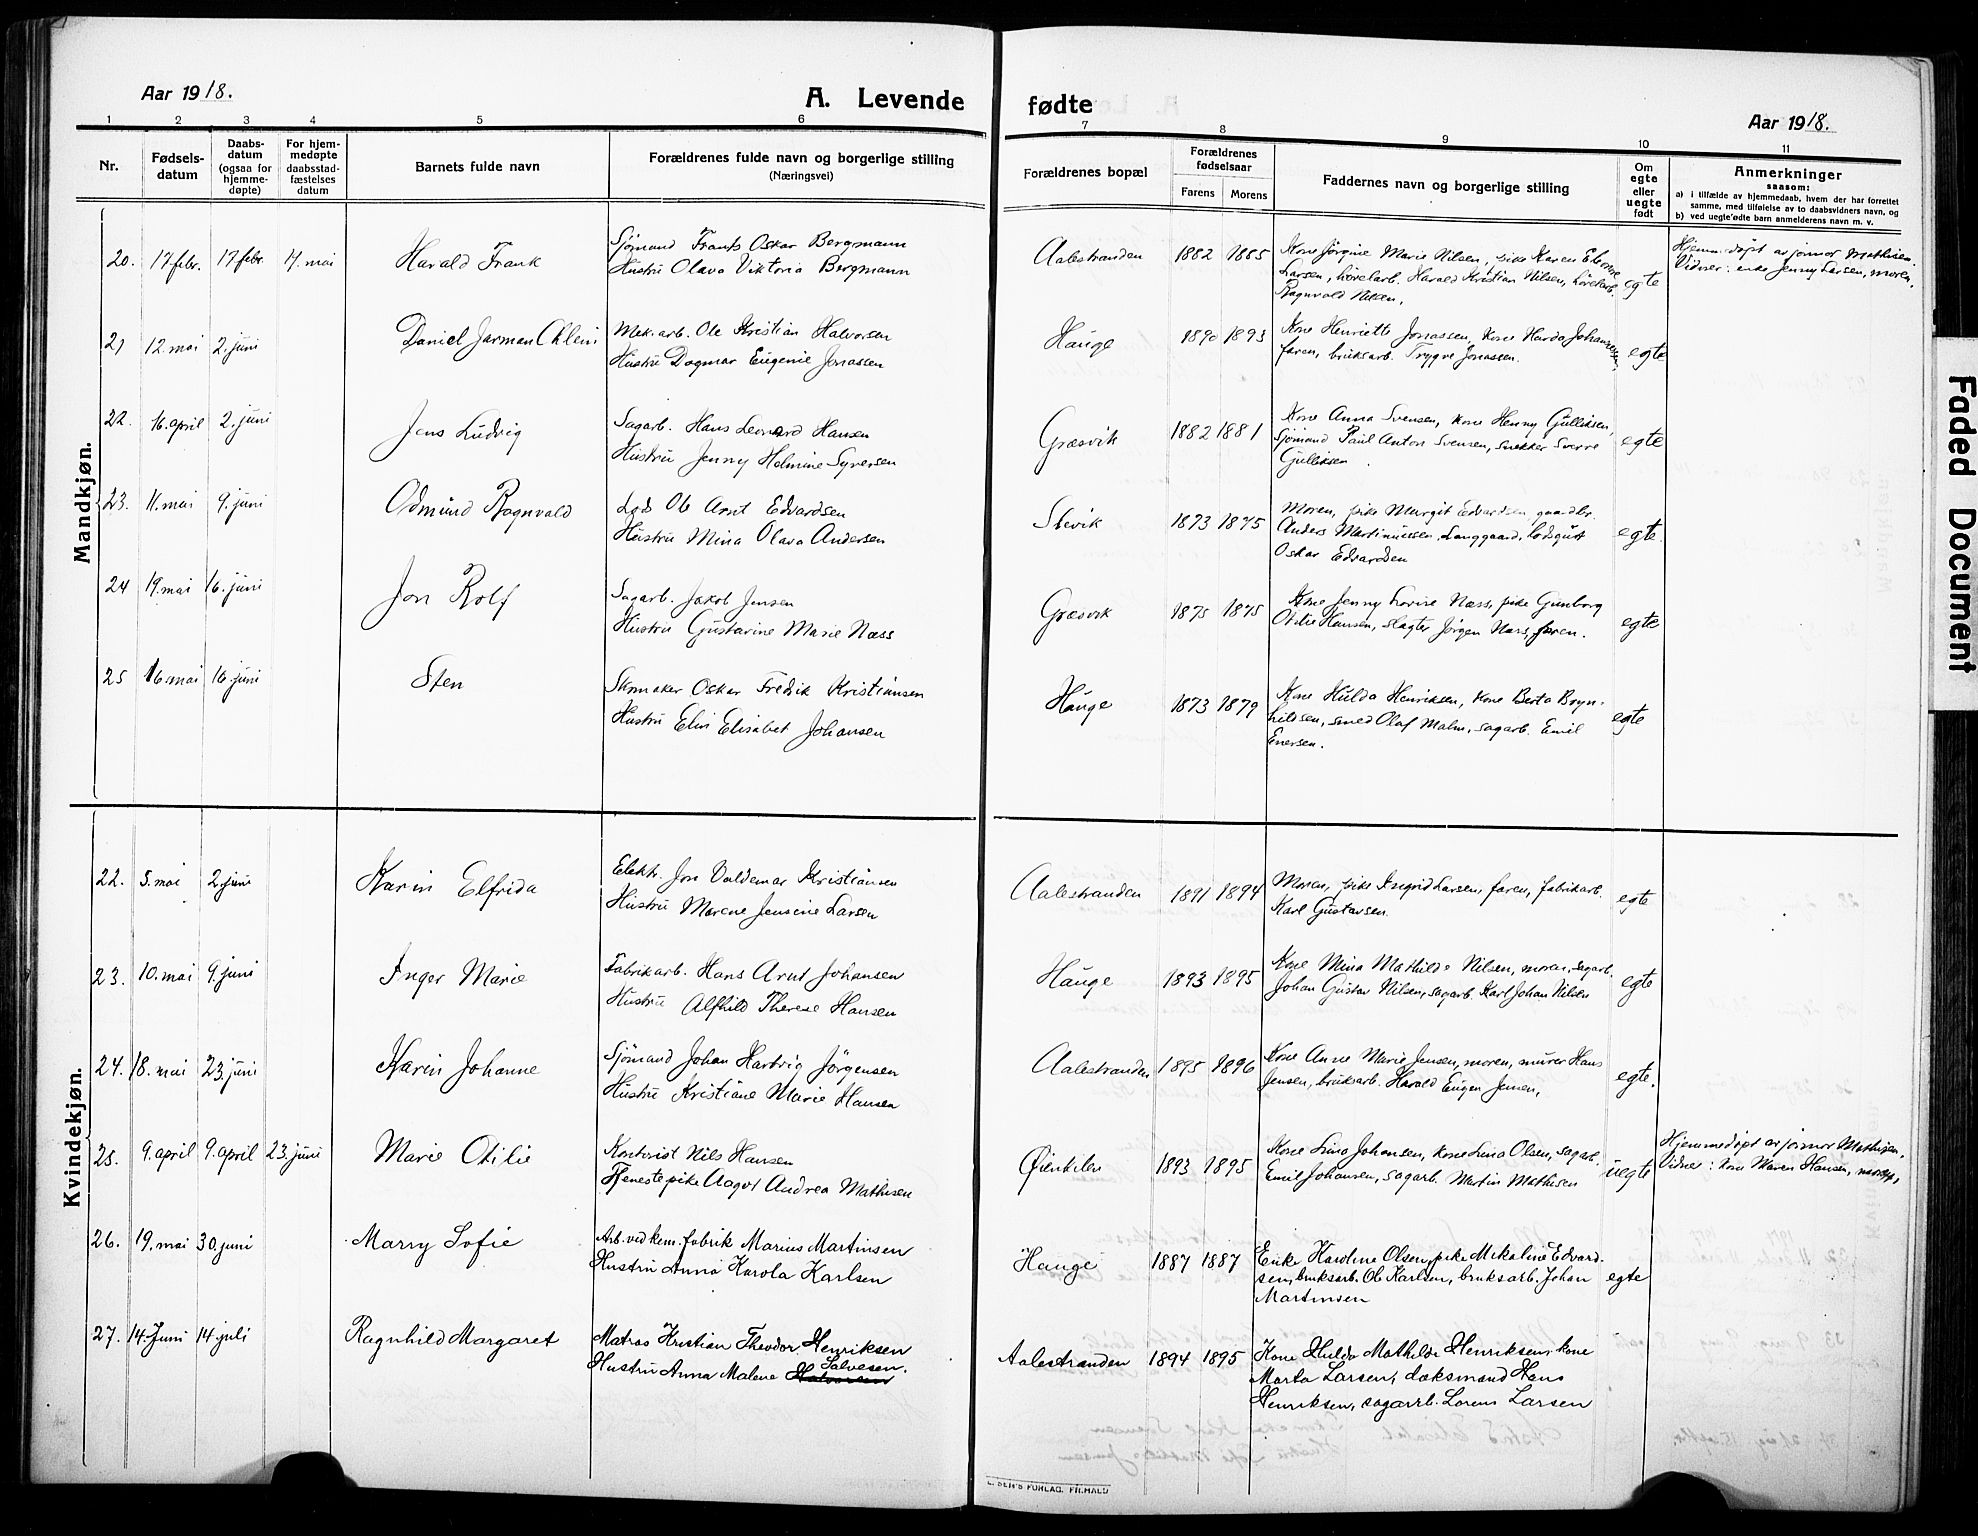 Aar 1918.
A. Levende
fødte
Aar 1918.
1 2 3 4 5 6 7 8 9 10 11
Nr.
Fødsels-
datum
Daabs-
datum
(ogsaa for
hjemme-
døpte)
For hjem-
medøpte
daabsstad-
fæstelses
datum
Barnets fulde navn
Forældrenes fulde navn og borgerlige stilling
(Næringsvei)
Forældrenes bopæl
Forældrenes
fødselsaar
Farens Morens
Faddernes navn og borgerlige stilling
Om
egte
eller
uegte
født
Anmerkninger
saasom:
a) i tilfælde av hjemmedaab, hvem der har forrettet
samme, med tilføielse av to daabsvidners navn, og
b) ved uegte fødte barn anmelderens navn m. v.
Mandkjøn.
20. 17 febr. 17 febr. 17. mai Harald Frank
Sjømand Frants Oskar Bergmann
Hustru Olava Viktoria Bergmann
Aalestranden 1882 1885
Kone Jørgine Marie Nilsen, pike Karen Elenore
Larsen, hövelarb. Harald Kristian Nilsen, hövelarb.
Ragnvald Nilsen,
egte
Hjemmedöpt av jormor Mathisen.
Vidner: enke Jenny Larsen, moren.
21 12 mai 2. juni Daniel Jarman
Mek. arb. Ole Kristian Halvorsen
Hustru Dagmar Eugenie Jonassen
Hauge 1890 1893
Kone Henriette Jonassen, kone Harda Johannesen,
faren, bruksarb. Trygve Jonassen.
egte
22. 16. april 2. juni Jens Ludvig
Sagarb. Hans Leonard Hansen
Hustru Jenny Helmine Syversen
Græsvik 1882 1881
Kone Anna Svensen, kone Henny Gulliksen,
Sjömand Paul Anton Svensen, snekker Sverre
Gulliksen
egte
23. 11. mai 9. juni Odmund Ragnvald
Lods Ole Arnt Edvardsen
Hustru Mina Olava Andersen
Slevik 1873 1875
Moren, pike Margit Edvardsen, gaardbr.
Anders Martinuissen Langgaard, Lodsgut
Oskar Edvardsen
egte.
24 19. mai 16. juni Jon Rolf
Sagarb. Jakob Jensen
Hustru Gustavine Marie Næss
Græsvik 1875 1875
Kone Jenny Lovise Næss, pike Gunborg
Otilie Hansen, slagter Jörgen Næss, faren.
egte
25 16. mai 16. juni Sten
Skomaker Oskar Fredrik Kristiansen
Hustru Elin Elisabet Johansen
Hauge 1873 1879
Kone Hulda Henriksen, kone Berta Bryn-
hildsen, smed Olaf Malm, sagarb. Emil
Enersen.
egte
Kvindekjøn.
22. 5. mai 2. juni Karin Elfrida
Elektr. Jon Valdemar Kristiansen
Hustru Marene Jensine Larsen
Aalestranden 1891 1894
Moren, pike Ingrid Larsen, faren, fabrikarb.
Karl Gustavsen.
egte
23. 10. mai 9. juni Inger Marie
Fabrikarb. Hans Arnt Johansen
Hustru Alfhild Therese Hansen
Hauge 1893 1895
Kone Mina Mathilde Nilsen, moren, sagarb.
Johan Gustav Nilsen, sagarb. Karl Johan Nilsen
egte
24. 18. mai 23. juni Karin Johanne
Sjömand Johan Hartvig Jörgensen
Hustru Kristiane Marie Hansen
Aalestranden 1895 1896
Kone Anne Marie Jensen, moren, murer Hans
Jensen, bruksarb. Harald Eugen Jensen,
egte.
25. 9. april 9. april 23. juni Marie Otilie
Kontorist Nils Hansen
Tjenestepike Aagot Andrea Mathisen
Øienkilen 1893 1895
Kone Lina Johansen, kone Lina Olsen, sagarb.
Emil Johansen, sagarb. Martin Mathisen
uegte
Hjemmedöpt av jormor Mathisen,
Vidner: kone Maren Hansen,
26. 19. mai 30. juni Marry Sofie
Arb. ved kem. fabrik Marius Martinsen
Hustru Anna Karola Karlsen
Hauge 1887 1887
Enke Karoline Olsen, pike Mikaline Edvard-
sen, bruksarb. Ole Karlsen, bruksarb. Johan
Martinsen
egte
27. 14. juni 14 juli Ragnhild Margaret
Matros Kristian Theodor Henriksen
Salvesen.
Hustru Anna Malene Halvorsen
Aalestranden 1894 1895
Kone Hulda Mathilde Henriksen, kone
Marta Larsen, dæksmand Hans
Henriksen, sagarb. Lorens Larsen
Faded Document